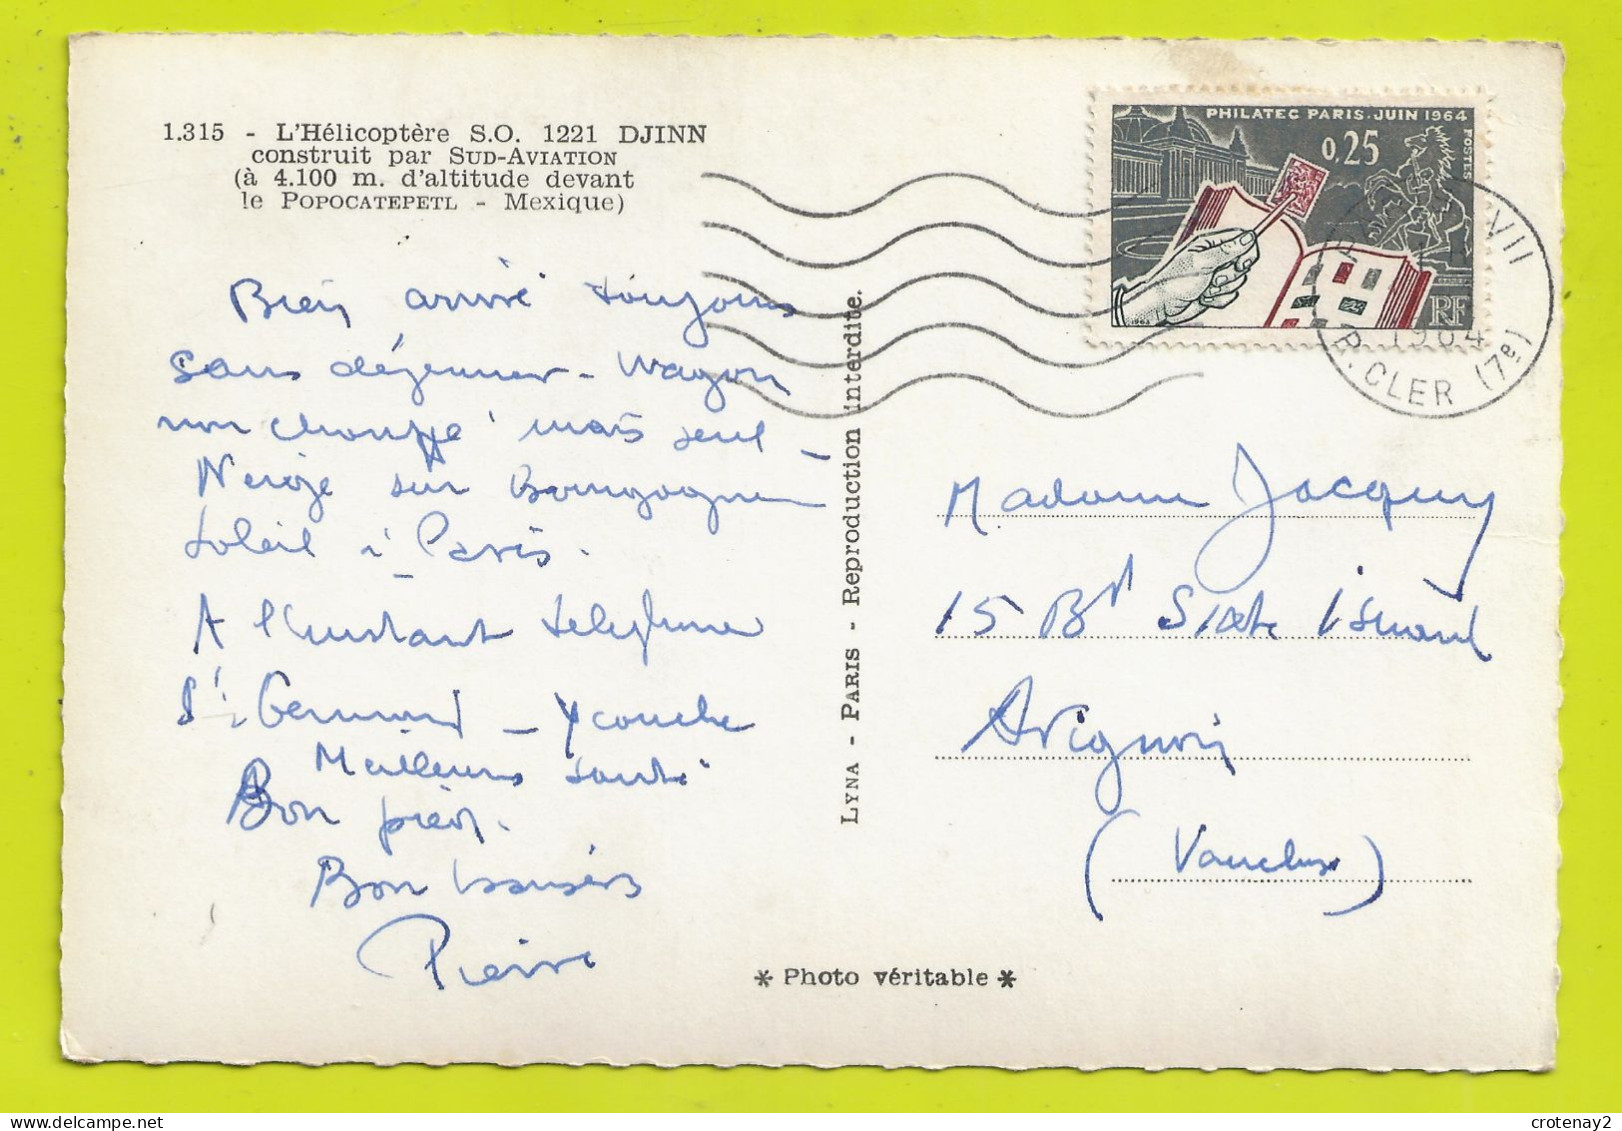 1.315 - L'Hélicoptère S.O. 1221 DJINN
construit par SUD-AVIATION
(à 4.100 m. d'altitude devant
le POPOCATEPETL - Mexique)
PHILATEC PARIS.JUIN 1964
0,25
POSTES
RF
VII
1964
R. CLER (7e)
Bien arrivé toujours
sans déjeuner - Wagon
non chauffé mais seul -
Neige sur Bourgogne
Soleil à Paris.
A l'instant téléphone
St Germain - y couche
Meilleure santé
Bon pied.
Bon baisers
Pierre
LYNA - PARIS - Reproduction interdite.
Madame Jacquny
15 Bd Sixte Isnard
Avignon
(Vaucluse)
* Photo véritable *
crotenay2